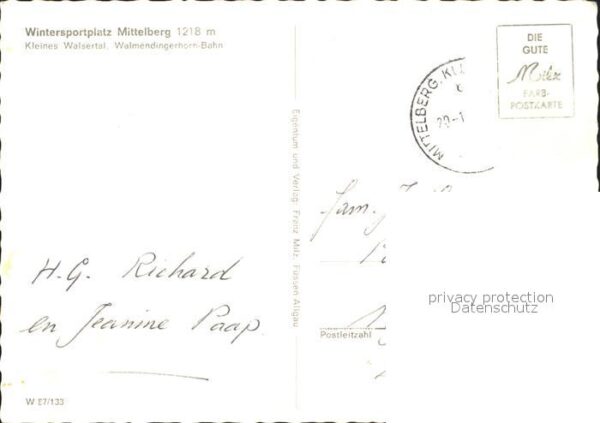 Wintersportplatz Mittelberg 1218 m
Kleines Walsertal, Walmendingerhorn-Bahn
DIE
GUTE
Milz
FARB-
POSTKARTE
MITTELBERG, KL
Eigentum und Verlag: Franz Milz, Füssen Allgäu
Fam.
H.G. Richard
en Jeanine Paap
privacy protection
Datenschutz
Postleitzahl
W E7/133